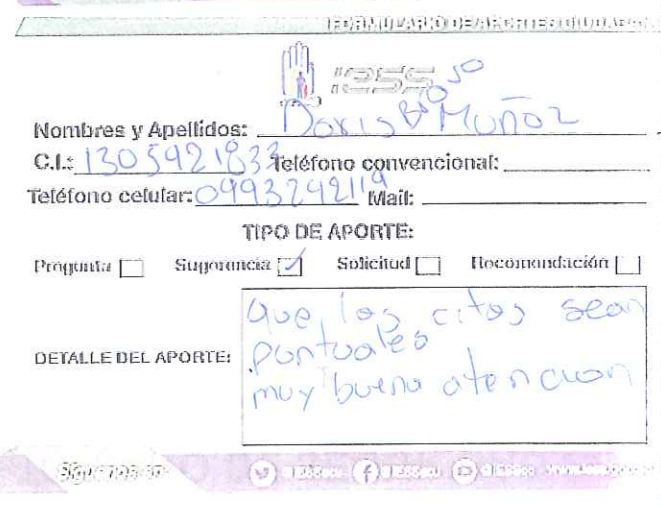 FORMULARIO DE APORTES CIUDADANOS
IESS
Nombres y Apellidos: Doris Bravo Muñoz
C.I.: 1305921833 Teléfono convencional:
Teléfono celular: 0993242119 Mail:
TIPO DE APORTE:
Pregunta Sugerencia ✓ Solicitud Recomendación
DETALLE DEL APORTE:
que las citas sean
puntuales
muy buena atencion
Síguenos en: